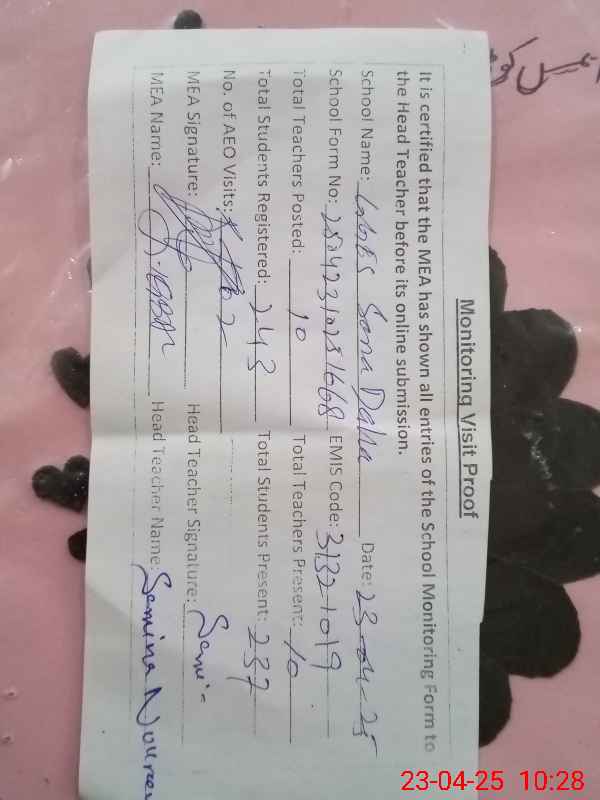 Monitoring Visit Proof
It is certified that the MEA has shown all entries of the School Monitoring Form to
the Head Teacher before its online submission.
School Name: Sana Daha Date: 23-04-25
School Form No: EMIS Code: 31321019
Total Teachers Posted: 10 Total Teachers Present: 10
Total Students Registered: 243 Total Students Present: 237
No. of AEO Visits: 2
MEA Signature: Head Teacher Signature: Sami
MEA Name: Head Teacher Name: Samina
23-04-25 10:28